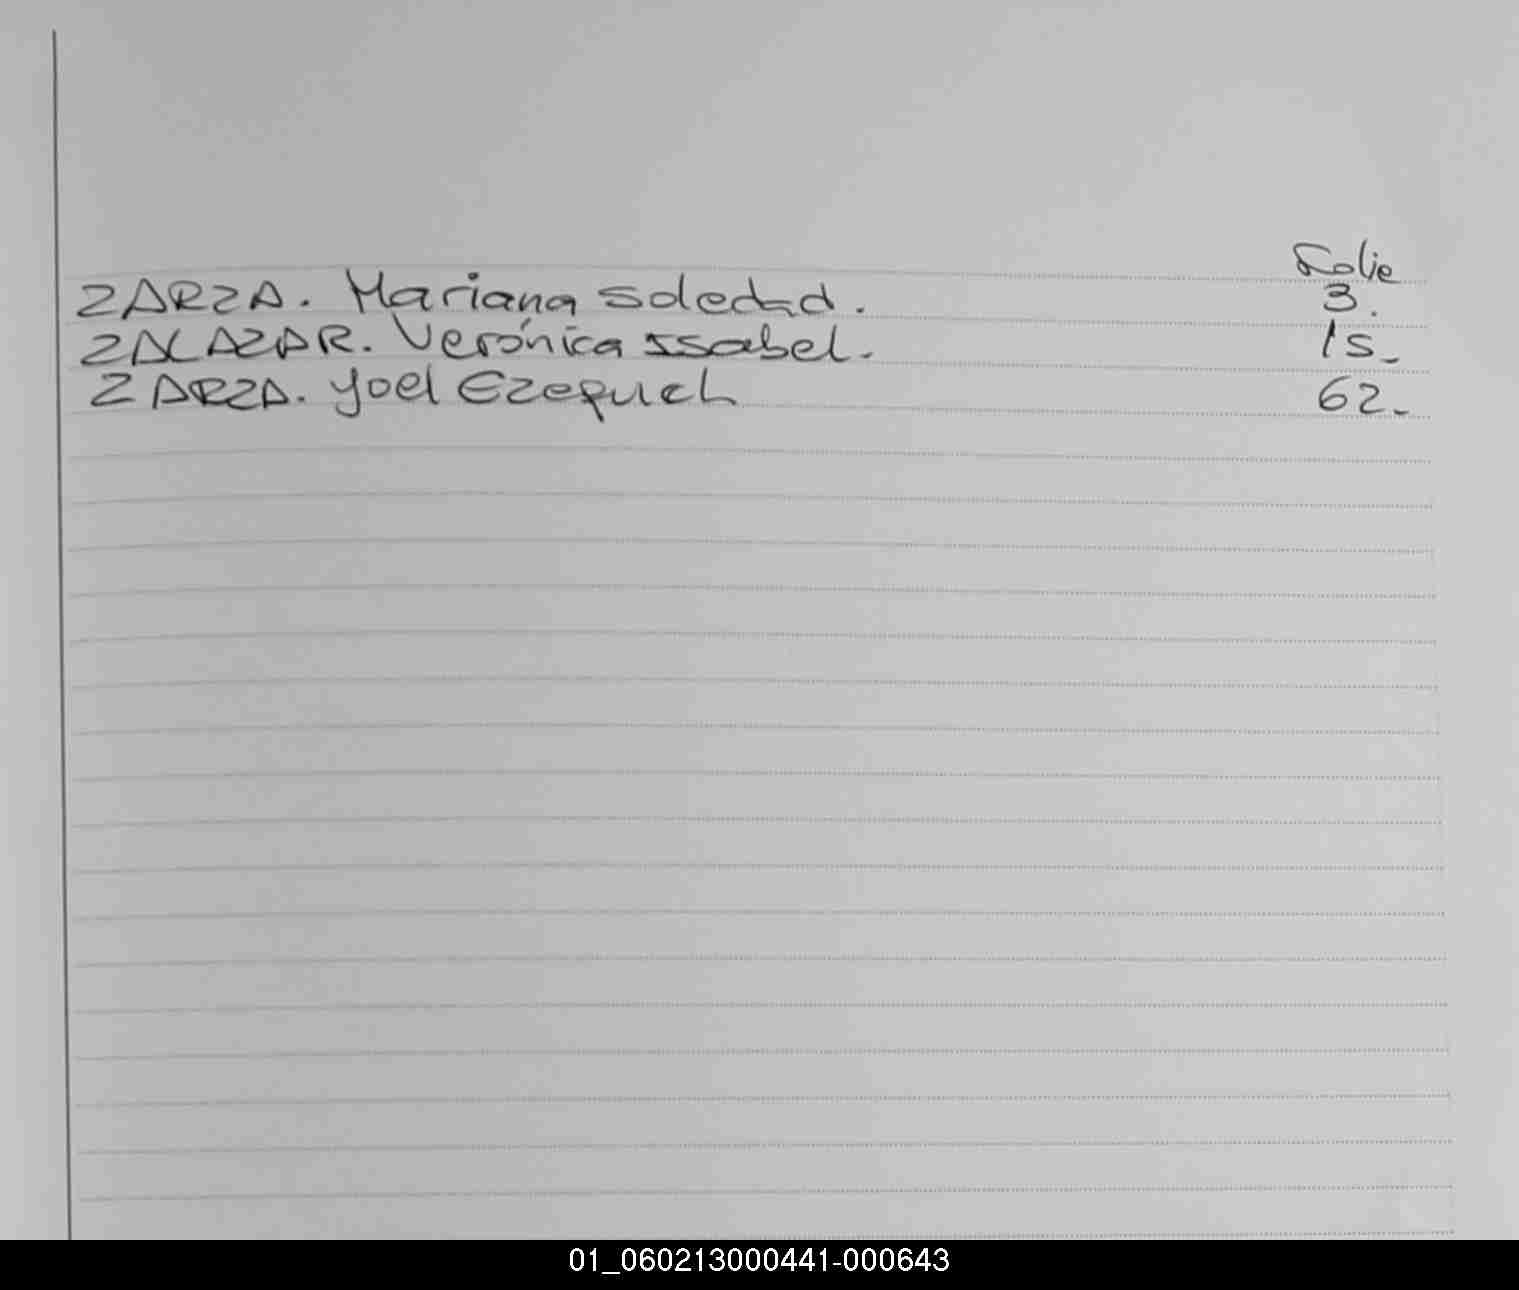 Folio
ZARZA. Mariana Soledad. 3.
ZALAZAR. Verónica Issabel. 15-
ZARZA. Yoel Ezequiel 62-
01_060213000441-000643